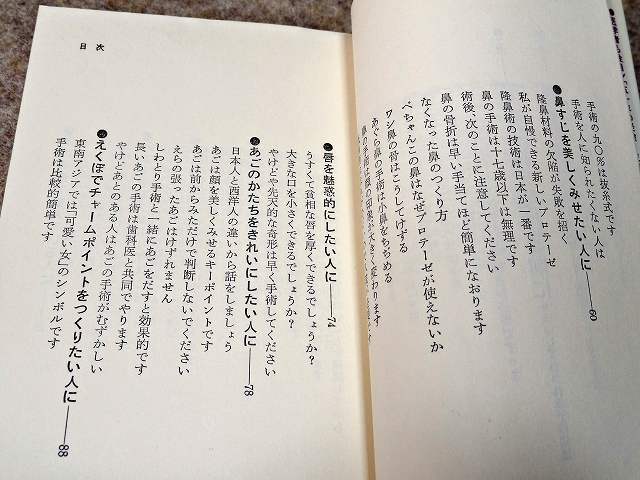 手術の九〇%は抜糸式です
手術を人に知られたくない人は
鼻すじを美しくみせたい人に——60
隆鼻材料の欠陥が失敗を招く
私が自慢できる新しいプロテーゼ
隆鼻術の技術は日本が一番です
鼻の手術は十七歳以下は無理です
術後、次のことに注意してください
鼻の骨折は早い手当てほど簡単になおります
なくなった鼻のつくり方
ぺちゃんこの鼻はなぜプロテーゼが使えないか
ワシ鼻の骨はこうしてけずる
あぐら鼻の手術は小鼻をちぢめる
鼻の手術は顔の印象が大きく変わります
目次
唇を魅惑的にしたい人に——74
うすくて貧相な唇を厚くできるでしょうか?
大きな口を小さくできるでしょうか?
やけどや先天的な奇形は早く手術してください
あごのかたちをきれいにしたい人に——78
日本人と西洋人の違いから話をしましょう
あごは顔を美しくみせるキーポイントです
あごは前からみただけで判断しないでください
えらの張ったあごはけずれません
しわとり手術と一緒にあごをだすと効果的です
長いあごの手術は歯科医と共同でやります
やけどあとのある人はあごの手術がむずかしい
えくぼでチャームポイントをつくりたい人に——88
東南アジアでは「可愛い女」のシンボルです
手術は比較的簡単です